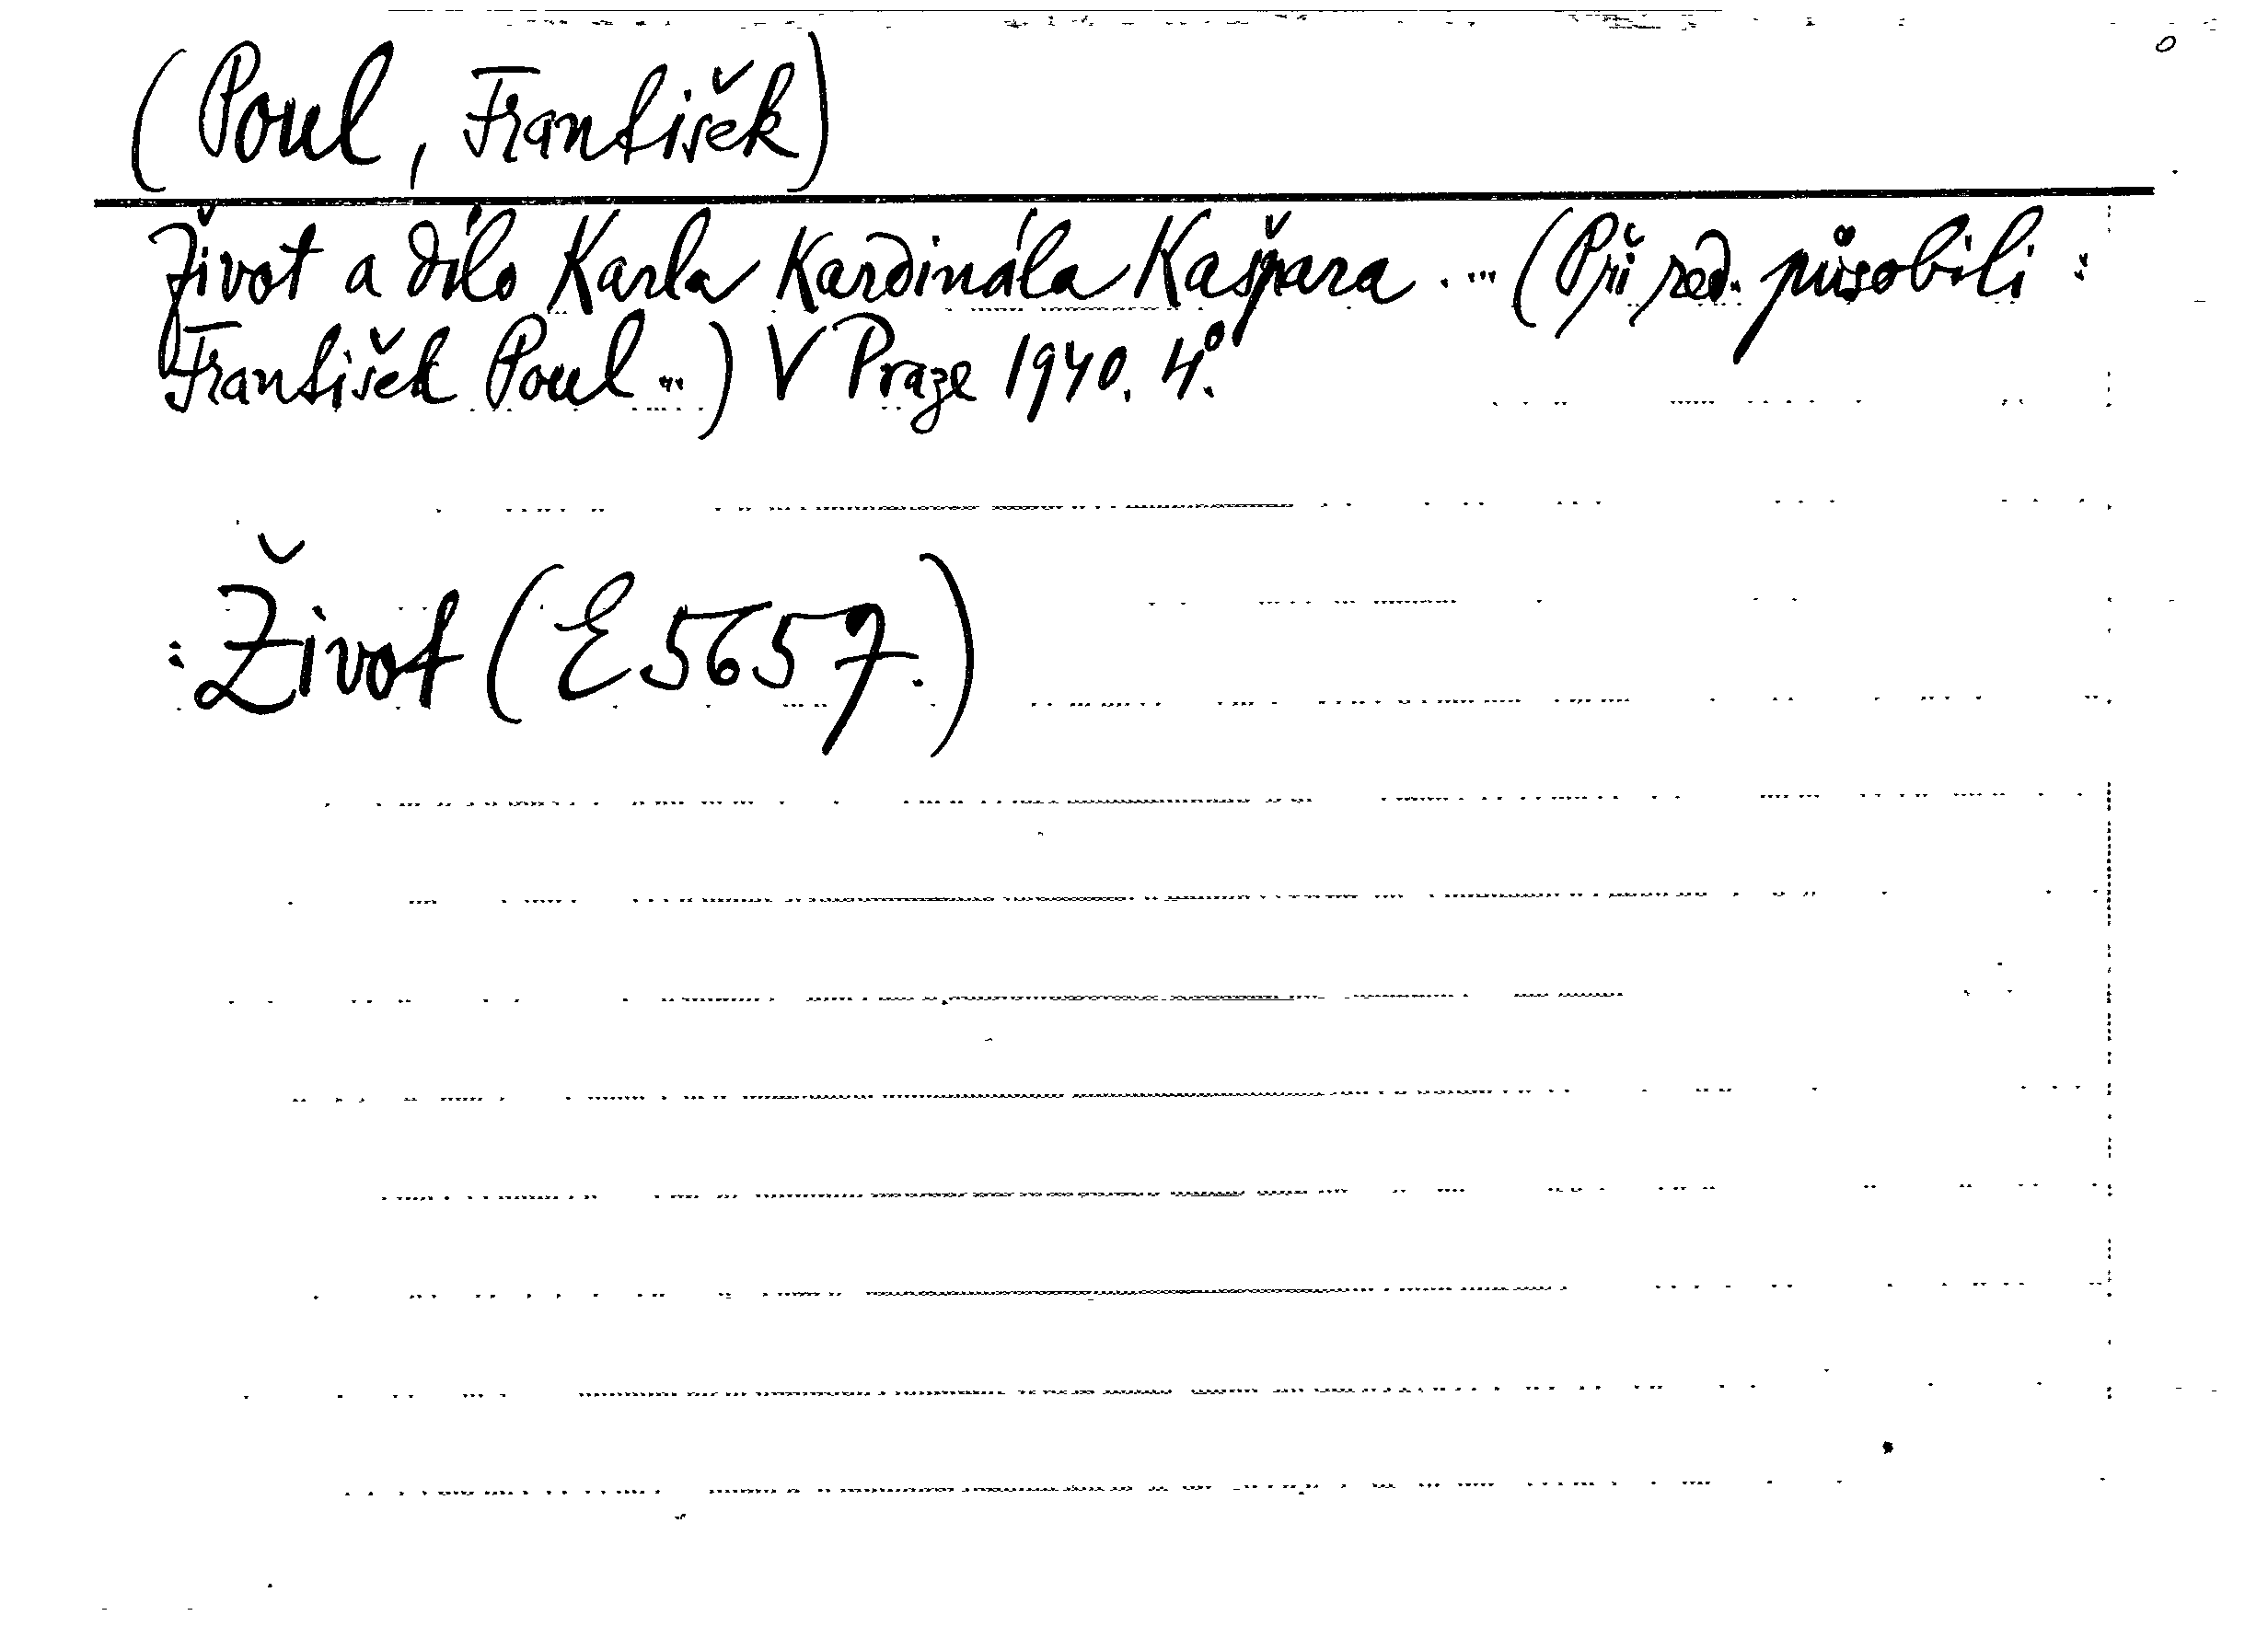 (Poul, František)
Život a dílo Karla Kardinála Kašpara .... (Při red. působili :
František Poul ...) V Praze 1940. 4°.
: Život (E 5657.)